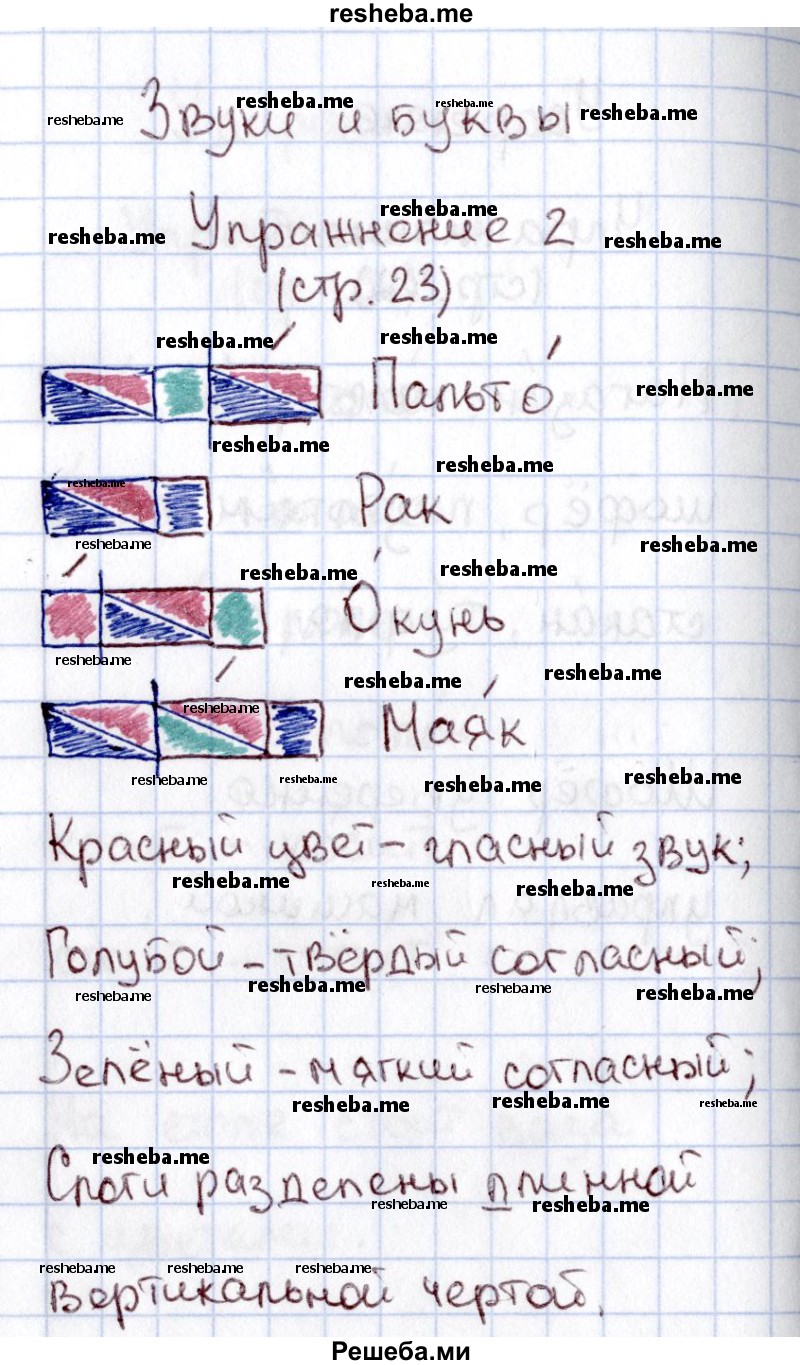 resheba.me
Звуки и буквы
Упражнение 2
(стр. 23)
Пальто́
Рак
О́кунь
Мая́к
Красный цвет – гласный звук;
Голубой – твёрдый согласный;
Зелёный – мягкий согласный;
Слоги разделены длинной
вертикальной чертой.
Решеба.ми